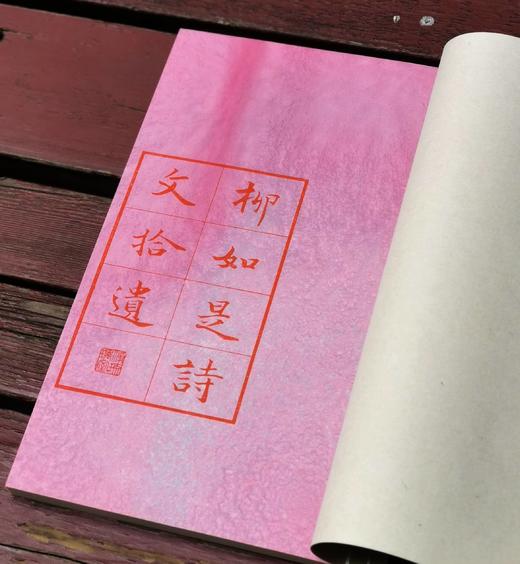 柳如是詩
文拾遺